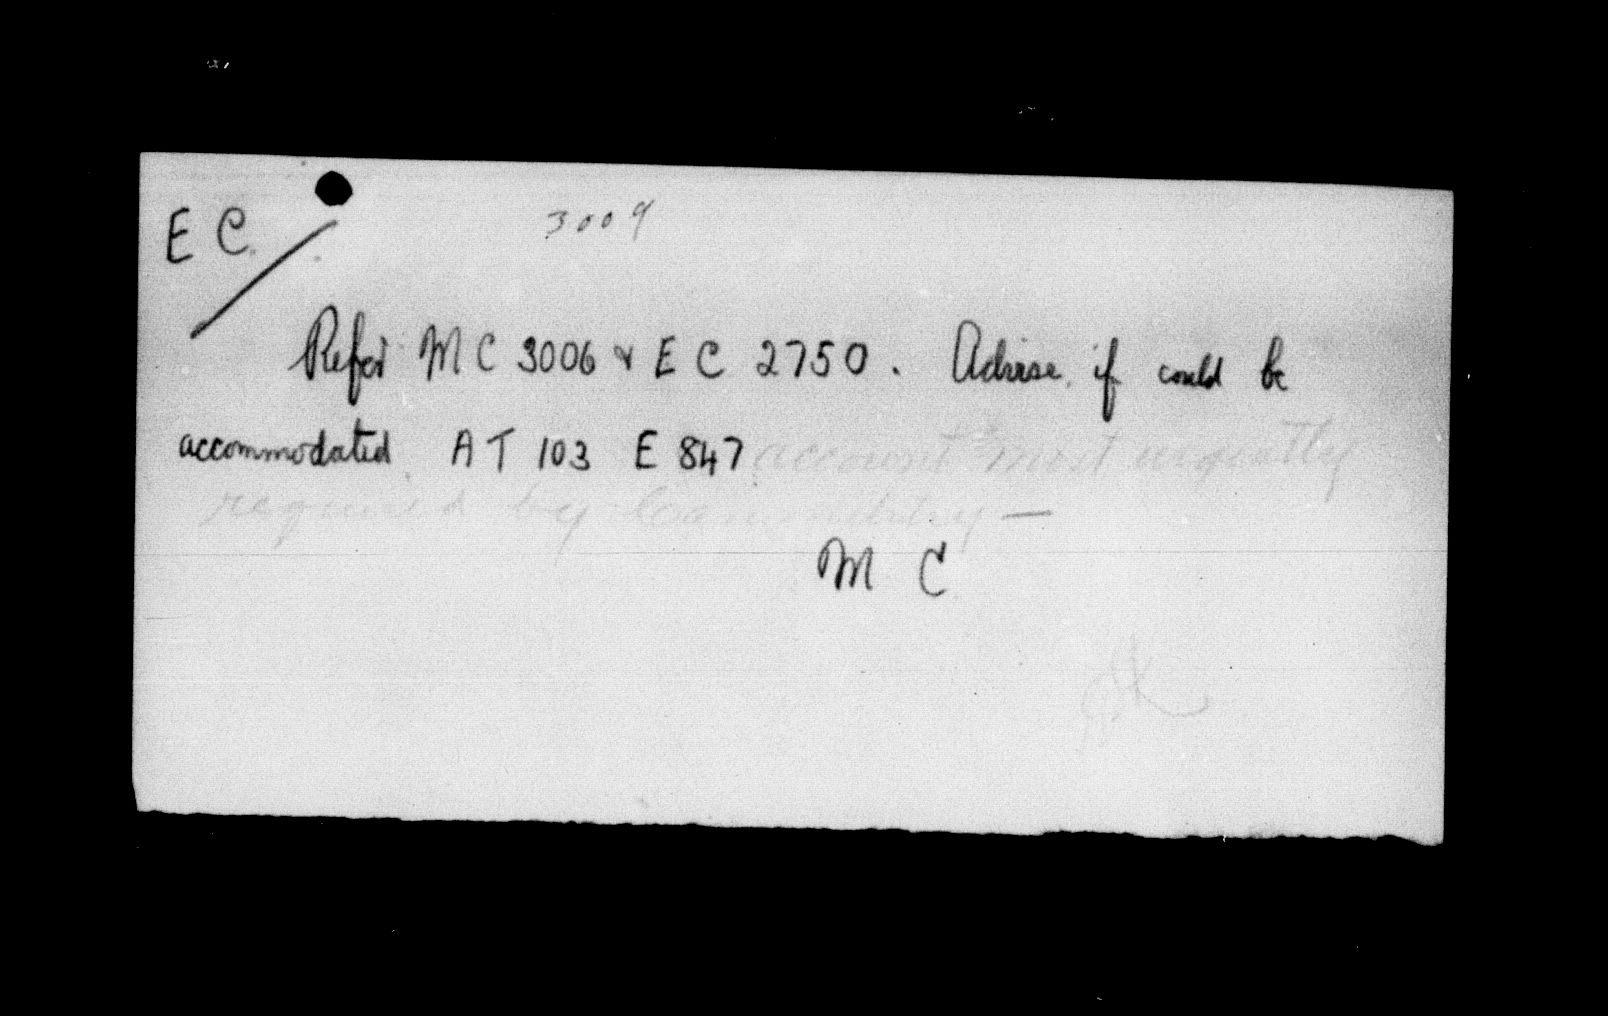 E C. 3009
Refer MC 3006 & E C 2750. Advise if could be
accommodated A T 103 E 847 account most urgently
required by —
M C